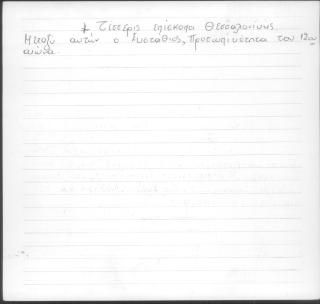 * Τέσσερις επίσκοποι Θεσσαλονίκης.
Μεταξύ αυτών ο Ευστάθιος, Προσωπικότητα του 12ου
αιώνα.